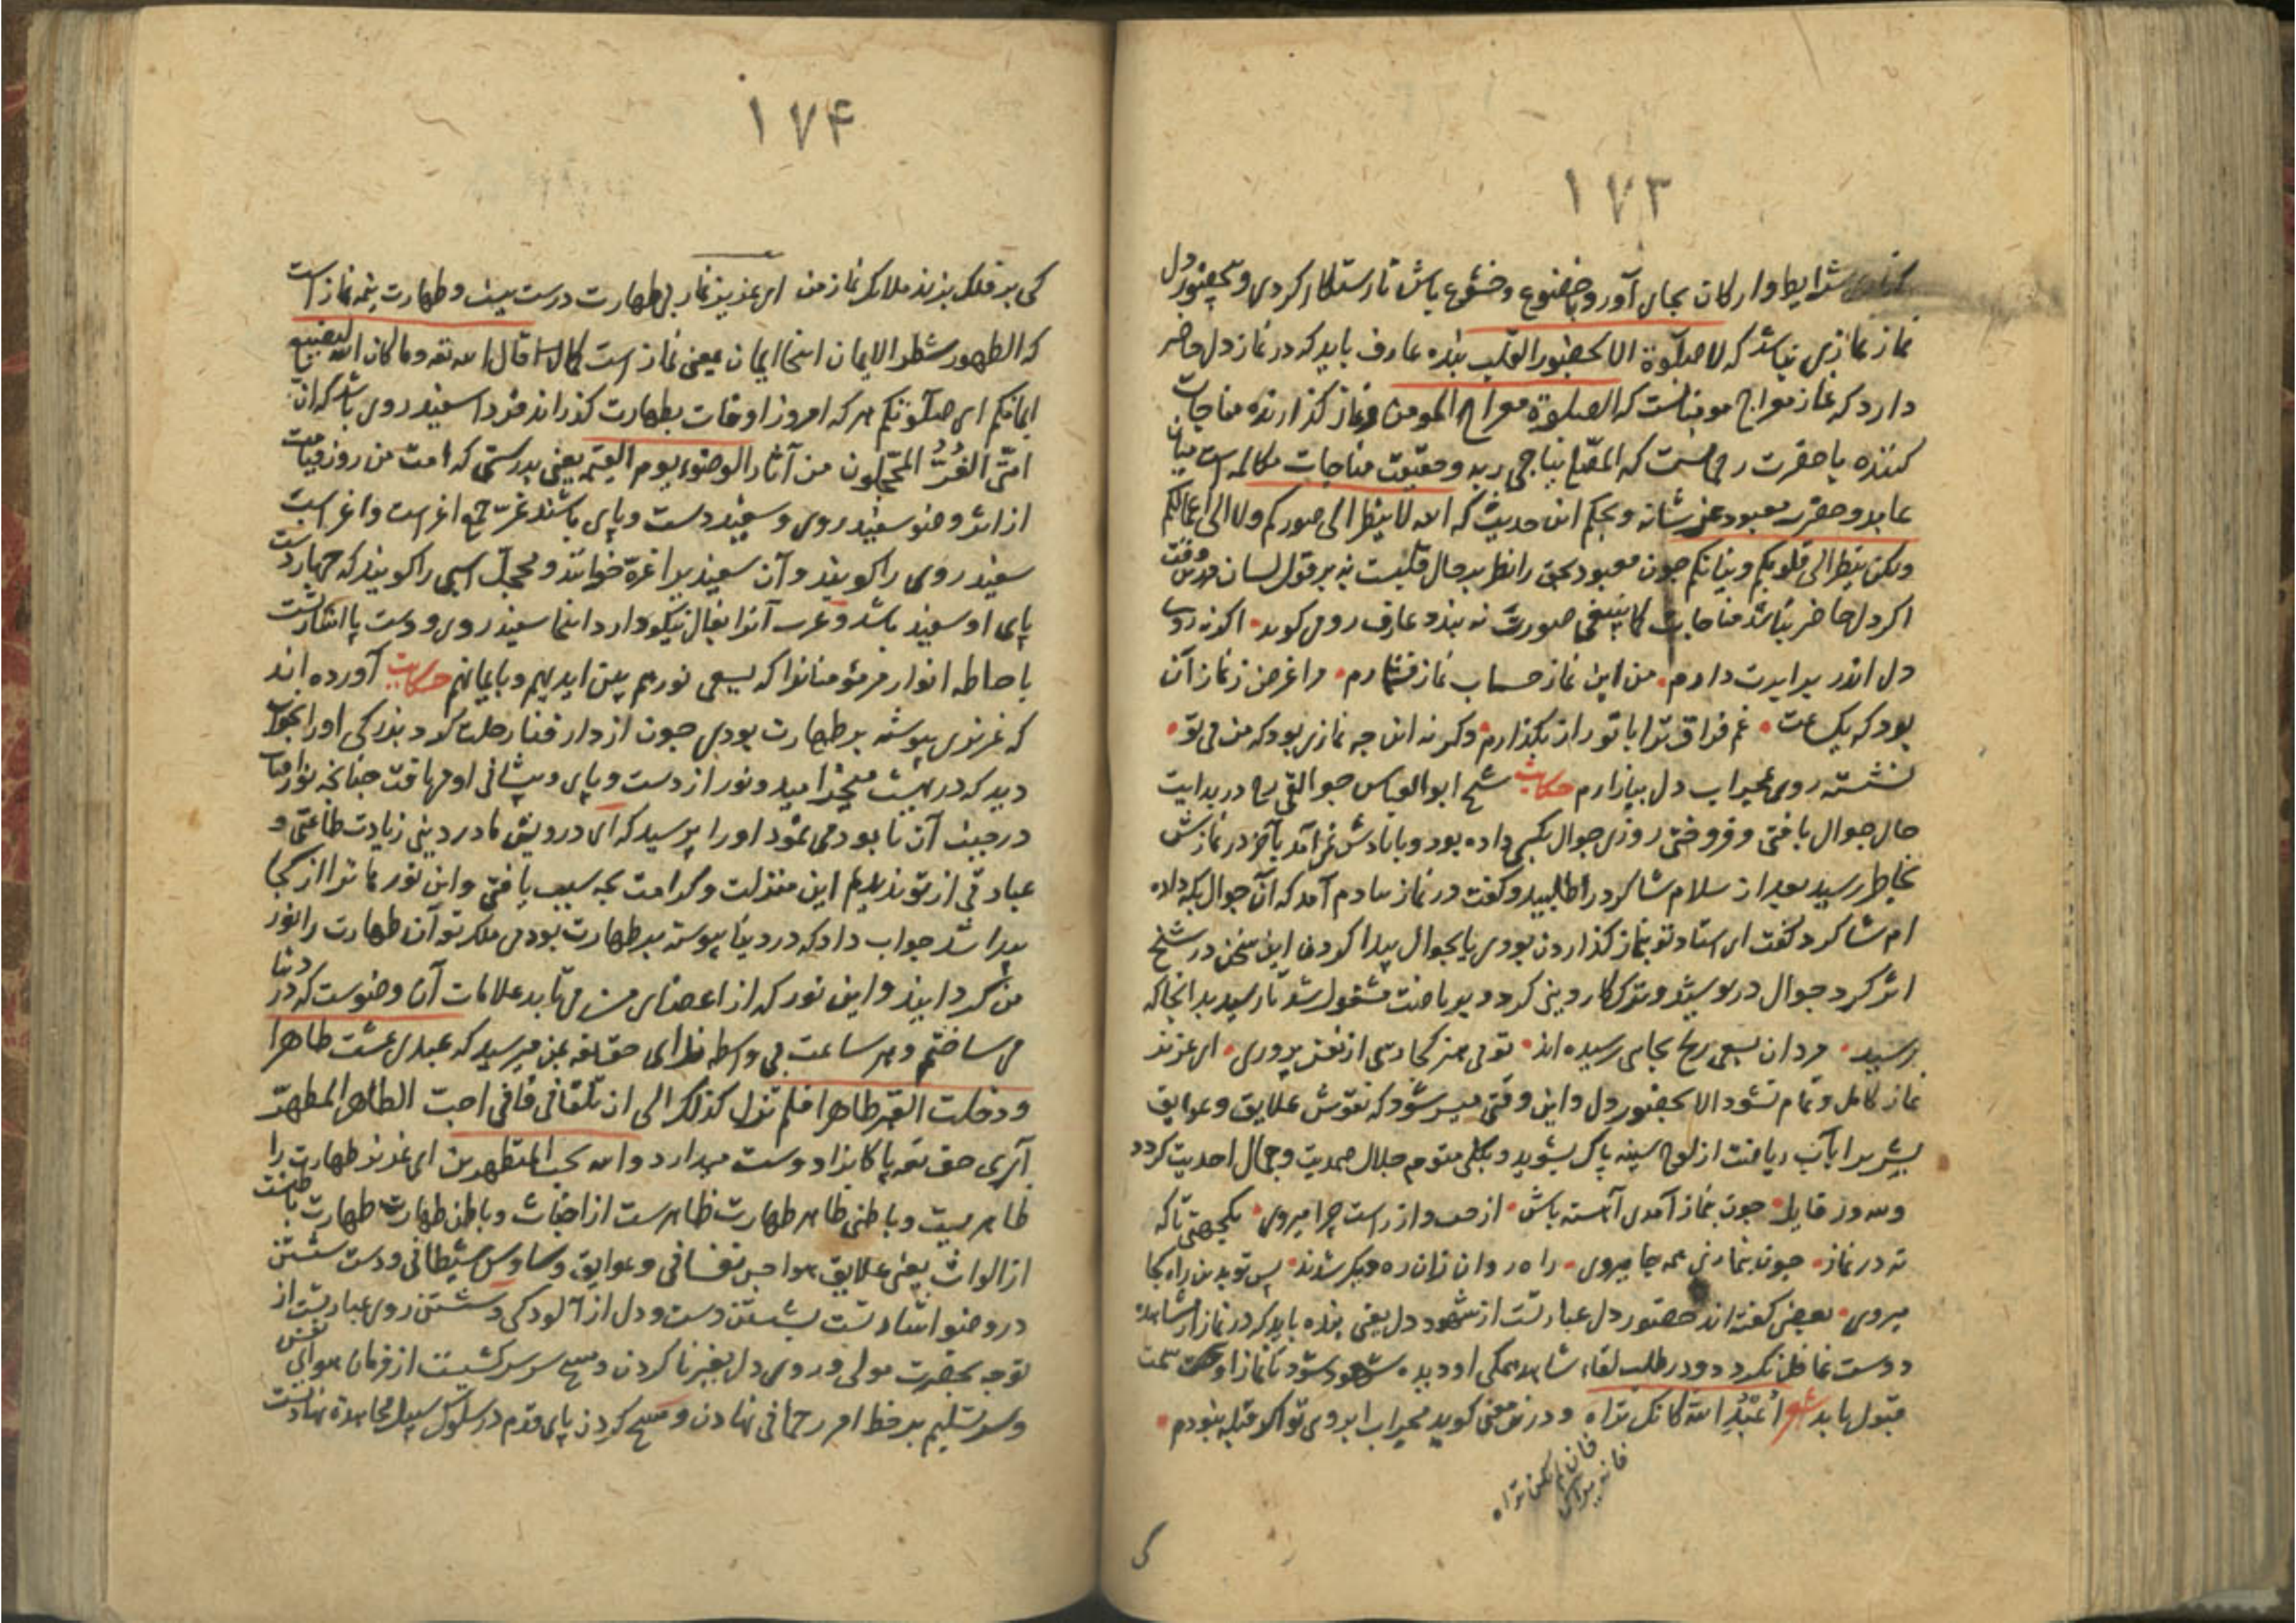 ۱۷۳
شرایط و ارکان بجای آور و باخضوع و خشوع باش تا رستکار کردی و بحضور دل
نماز نمازی نباشد که لا صلوة الا بحضور القلب بنده عارف باید که در نماز دل حاضر
دارد که نماز معراج مومنانست که الصلوة معراج المومن و نماز کذارنده مناجات
کننده با حضرت رحمانست که المصلی یناجی ربه و حقیقت مناجات مکالمه است میان
عابد و حضرت معبود عز شانه و بحکم این حدیث که ان الله لا ینظر الی صورکم ولا الی اعمالکم
ولکن ینظر الی قلوبکم و نیاتکم چون معبود بحق را نظر بر حال قلبست نه بر قول لسان
اکر دل حاضر نباشد مناجات کما ینبغی صورت نه بندد عارف رومی کوید اکر نه روی
دل اندر برابرت دارم من این نماز حساب نماز نشمارم مرا غرض ز نماز آن
بود که یک ساعت غم فراق ترا با تو راز بکذارم وکر نه این چه نمازی بود که من بی تو
نشسته روی بمحراب دل ببازارم حکایت شیخ ابو العباس جوالقی رح در بدایت
حال جوال بافتی و فروختی روزی جوال بکسی داده بود و با یادش نمی آمد آخر در نمازش
بخاطر رسید بعد از سلام شاکرد را طلبید و کفت در نماز بیادم آمد که آن جوال بکه داده
ام شاکرد کفت ای استاد تو بنماز کذاردن بودی یا بجوال پیدا کردن این سخن در شیخ
اثر کرد جوال درپوشید و ترک کار دینی کرد و بریاضت مشغول شد تا رسید بدانجا که
رسید مردان بسعی رنج بجایی رسیده اند تو بی هنر کجا رسی از نفس پروری ای عزیز
نماز کامل و تمام نشود الا بحضور دل و این وقتی میسر شود که نقوش علایق و عوایق
بشری را بآب ریاضت از لوح سینه پاک بشوید و بکلی متوجه جلال صمدیت و جمال احدیت کردد
ولله در قایله چون بنماز آمدی آهسته باش از چپ و از راست چرا میروی یکجهتی تا که
نه در نماز چون بنمازی همه جا میروی راه روان زان ره دیکر شدند پس تو بدین راه کجا
میروی بعضی کفته اند حضور دل عبارتست از شهود دل یعنی بنده باید که در نماز از مشاهده
دوست غافل نکردد و در طلب لقاء شاهد همکی او دیده شهود شود تا نماز او سمت
قبول یابد شعر اعبد الله کانک تراه و درین معنی کوید محراب ابروی تو اکر قبله نبودم
فان لم تکن تراه
فانه یراک
کی
۱۷۴
کی بر فلک برند ملائک نماز من ای عزیز نماز بی طهارت درست نیست و طهارت نیمه نماز است
که الطهور شطر الایمان اینجا ایمان بمعنی نماز است کما قال الله تعه وما کان الله لیضیع
ایمانکم ای صلوتکم هر که امروز اوقات بطهارت کذراند فردا سفید روی باشد که ان
امتی الغر المحجلون من آثار الوضوء یوم القیمه یعنی بدرستی که امت من روز قیامت
از اثر وضو سفید روی و سفید دست و پای باشند غر جمع اغر است و اغر اسب
سفید روی را کویند و آن سفیدی را غره خوانند و محجل اسبی را کویند که چهار دست
پای او سفید باشد و عرب آنرا بفال نیکو دارد اینجا سفید روی و دست پا اشارتست
باحاطه انوار مر مؤمنانرا که یسعی نورهم بین ایدیهم و بایمانهم حکایت آورده اند
که عزیزی پیوسته بر طهارت بودی چون از دار فنا رحلت کرد بزرکی او را بخواب
دید که در بهشت میخرامید و نور از دست و پای و پیشانی او می تافت چنانچه نور آفتاب
در جنب آن نابود می نمود او را پرسید که ای درویش ما در دینی زیادت طاعتی و
عبادتی از تو ندیدیم این منزلت و کرامت بچه سبب یافتی و این نورها ترا از کجا
پیدا شد جواب داد که در دنیا پیوسته بر طهارت بودمی ملک تو آن طهارت را نور
من کردانید و این نور که از اعضای من می تابد علامات آن وضوست که در دنیا
می ساختم و هر ساعت بی واسطه ندای حق تعه بمن میرسید که عبدی عشت طاهرا
و دخلت القبر طاهرا فلم تزل کذلک الی ان تلقانی فانی احب الطاهر المطهر
آری حق تعه پاکانرا دوست میدارد والله یحب المتطهرین ای عزیز طهارت را
ظاهریست و باطنی ظاهر طهارت طهارتست از اخباث و باطن طهارت طهارت باطنست
از الواث یعنی علایق هواجس نفسانی و عوایق وساوس شیطانی و دست شستن
در وضو اشارتست بشستن دست و دل از آلودکی و شستن روی عبارتست از
توجه بحضرت مولی و روی دل بغیر نا کردن و مسح سر سر کشیدنست از فرمان هوای نفس
و سر تسلیم بر خط امر رحمانی نهادن و مسح کردن پای قدم در سلوک سبیل مجاهده نهادنست